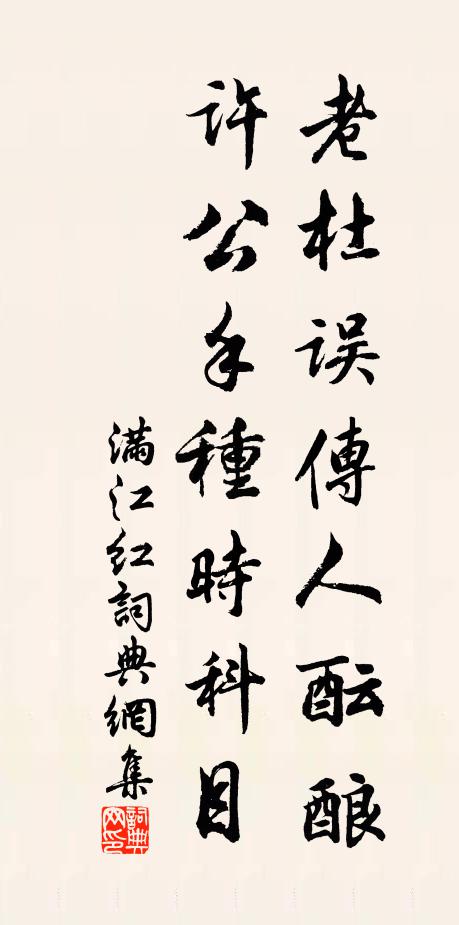 老杜误傳人酝酿
许公手種時科目
满江红詞典網集
詞典网印